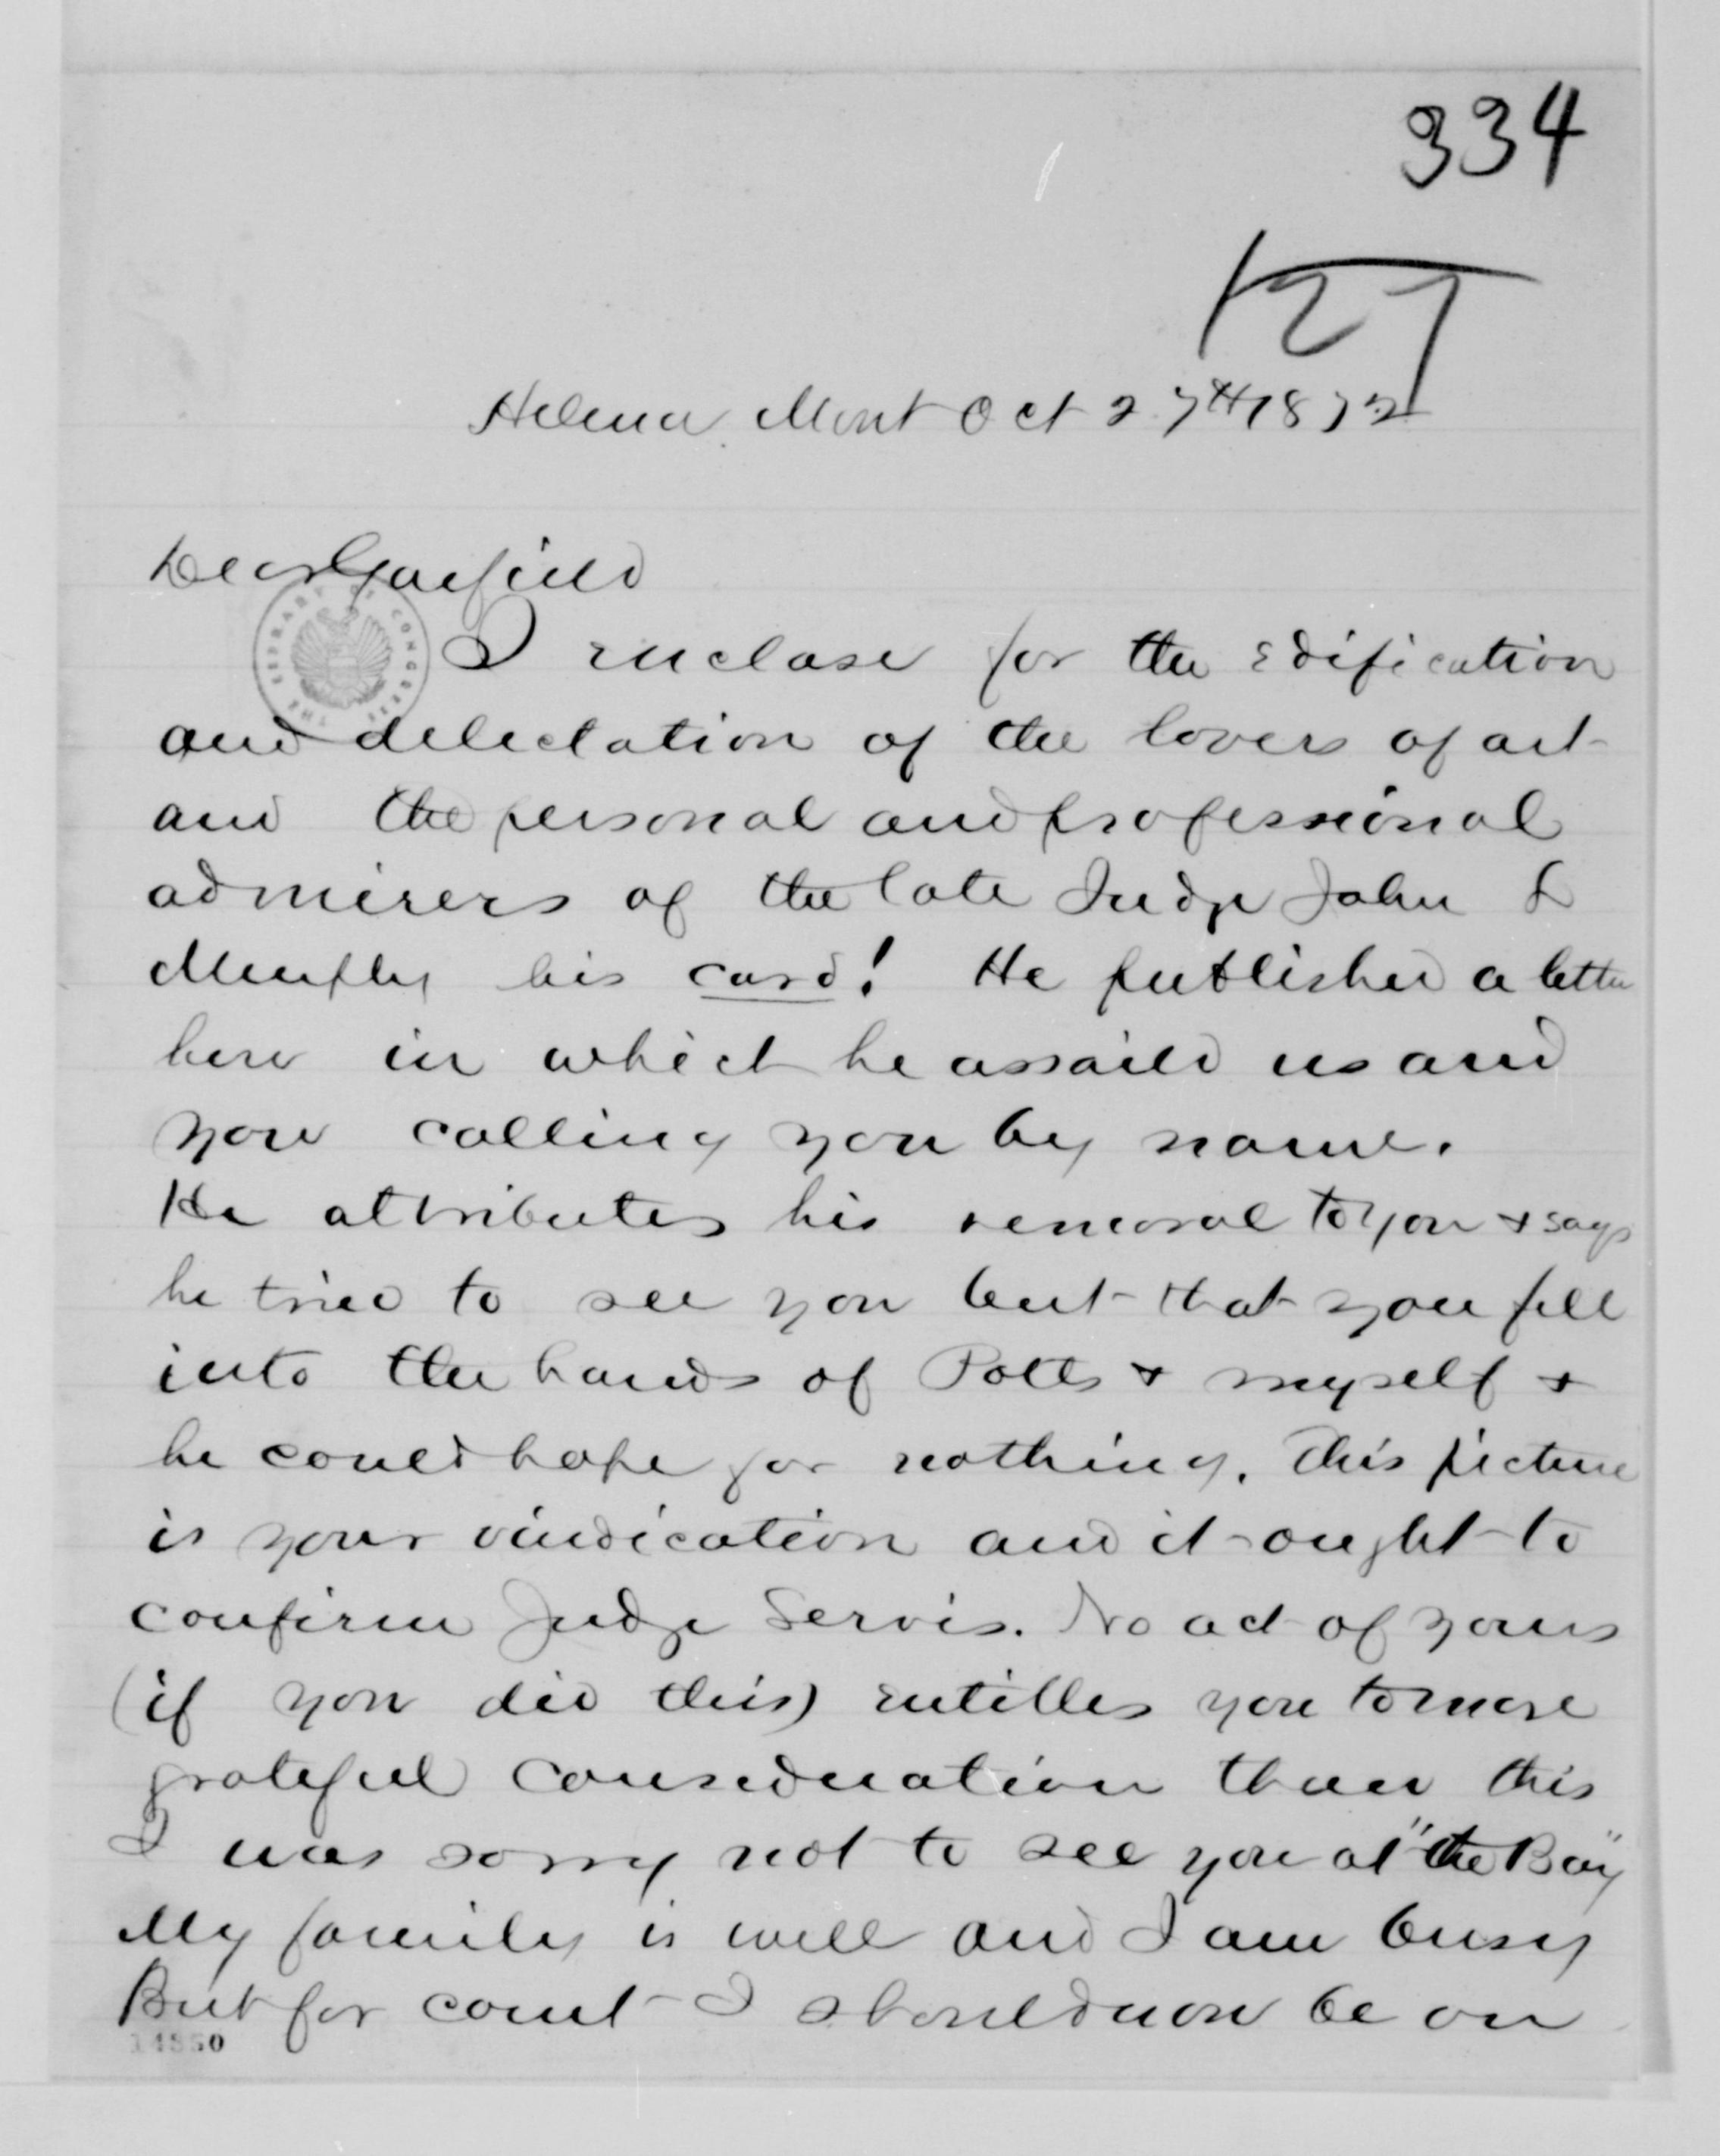 334
Helena Mont Oct 27th 1872
Dear Garfield
THE LIBRARY OF CONGRESS
I enclose for the edification
and delectation of the lovers of art
and the personal and professional
admirers of the late Judge John L
Murphy his card! He published a letter
here in which he assailed us and
you calling you by name.
He attributes his removal to you & says
he tried to see you but that you fell
into the hands of Potts & myself &
he could hope for nothing. This picture
is your vindication and it ought to
confirm Judge Servis. No act of yours
(if you did this) entitles you to more
grateful consideration than this
I was sorry not to see you at "the Bay"
My family is well and I am busy
But for court I should now be on
14550